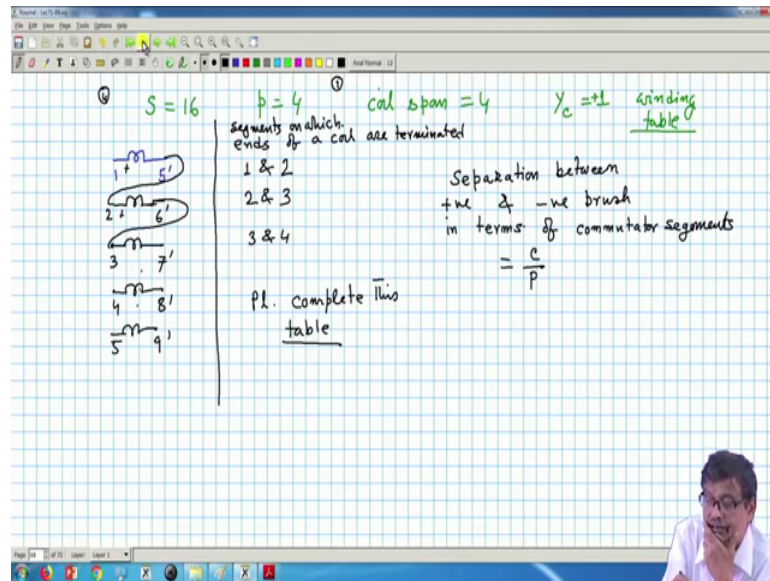 Xournal - Lec71-88.xoj
File Edit View Page Tools Options Help
Arial Normal 12
S = 16 p = 4 coil span = 4 Yc = +1 winding table
segments on which
ends of a coil are terminated
1 + 5'
2 + 6'
3 7'
4 8'
5 9'
1 & 2
2 & 3
3 & 4
Pl. complete This
table
Separation between
+ve & -ve brush
in terms of commutator segments
= C/P
Page 68 of 72 Layer: Layer 1